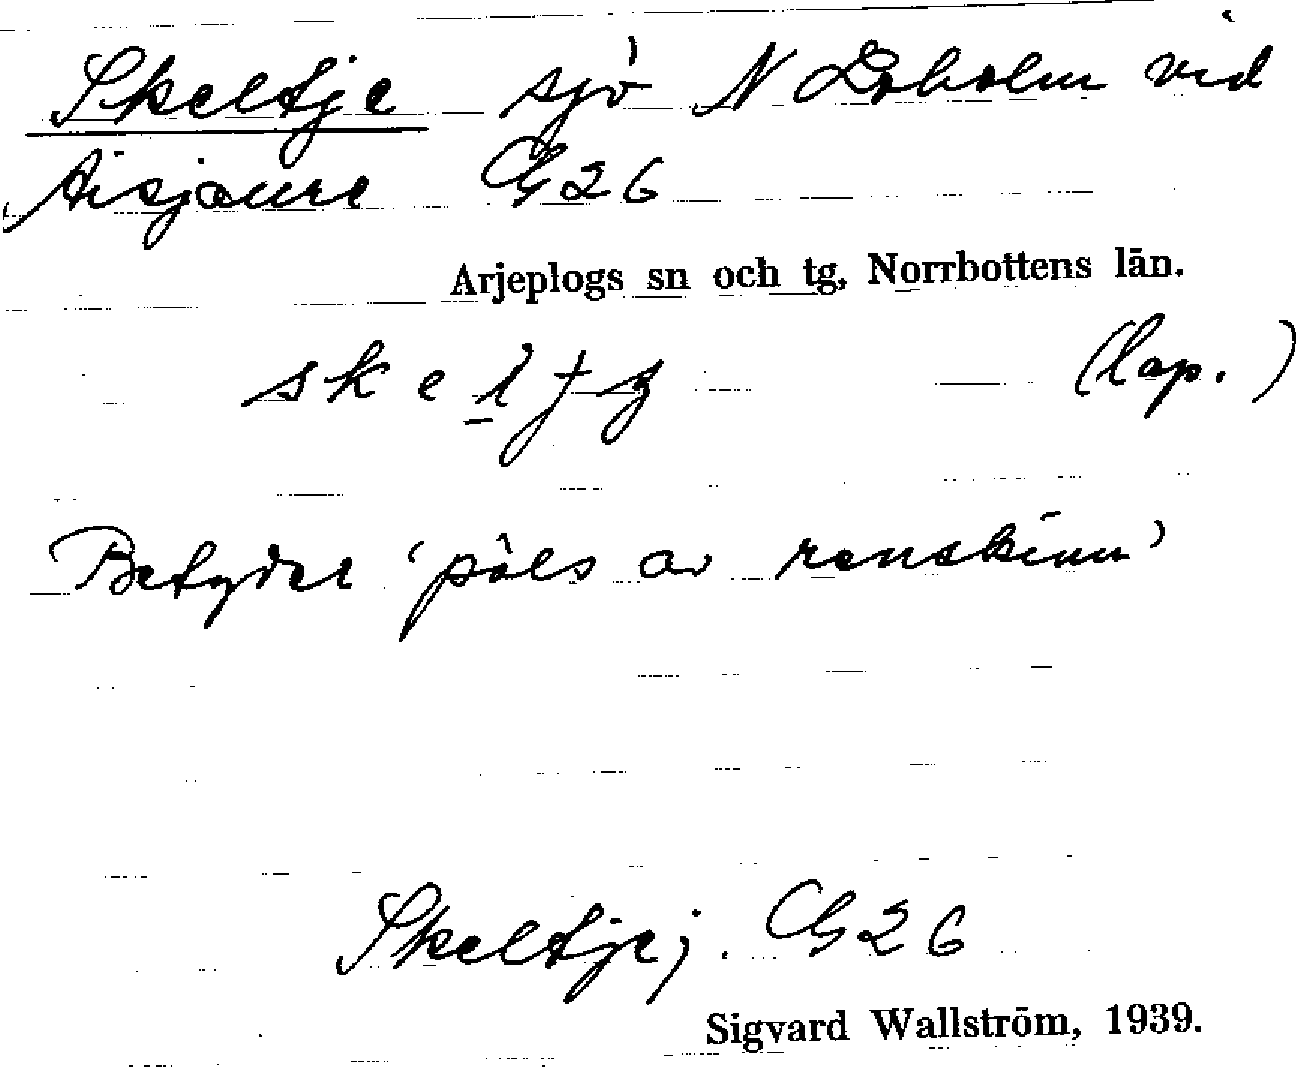 Skeltje sjö N Löholm vid
Aisjaure G26
Arjeplogs sn och tg, Norrbottens län.
(lap.)
Betyder 'päls av renskinn'
Skeltjej. G26
Sigvard Wallström, 1939.